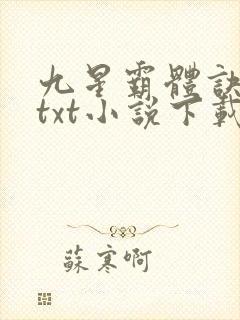 九星霸體訣
txt小說下載
蘇寒啊